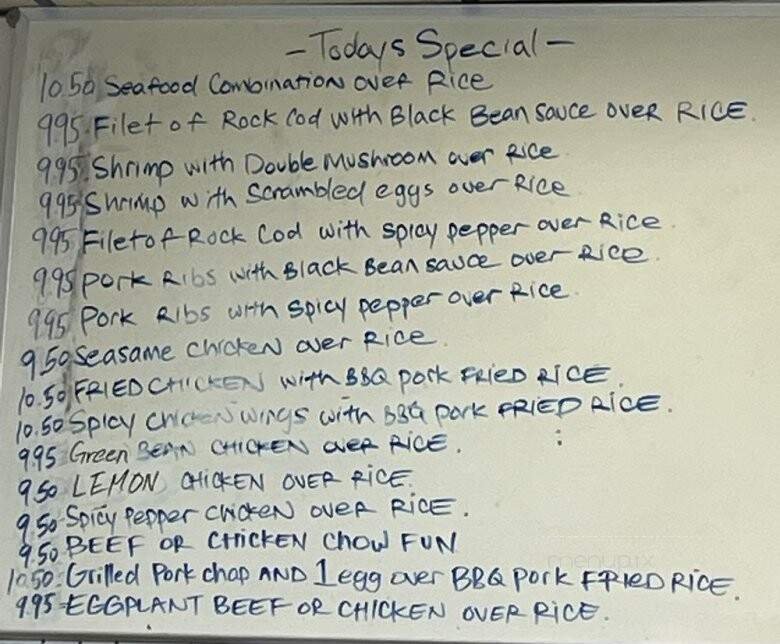 - Todays Special -
10.50 Seafood Combination over Rice
9.95. Filet of Rock Cod with Black Bean sauce over RICE.
9.95. Shrimp with Double Mushroom over Rice
9.95 Shrimp with Scrambled eggs over Rice
9.95 Filet of Rock Cod with spicy pepper over Rice.
9.95 pork Ribs with Black Bean sauce over Rice.
9.95 Pork Ribs with spicy pepper over Rice.
9.50 Seasame chicken over Rice.
10.50 FRIED CHICKEN with BBQ pork FRIED RICE.
10.50 Spicy chicken wings with BBQ pork FRIED RICE.
9.95 Green BEAN CHICKEN OVER RICE.
9.50 LEMON CHICKEN OVER RICE.
9.50 Spicy Pepper chicken over RICE.
9.50 BEEF OR CHICKEN CHOW FUN
10.50. Grilled Pork chop AND 1 egg over BBQ pork FRIED RICE.
9.95 EGGPLANT BEEF OR CHICKEN OVER RICE.
menupix